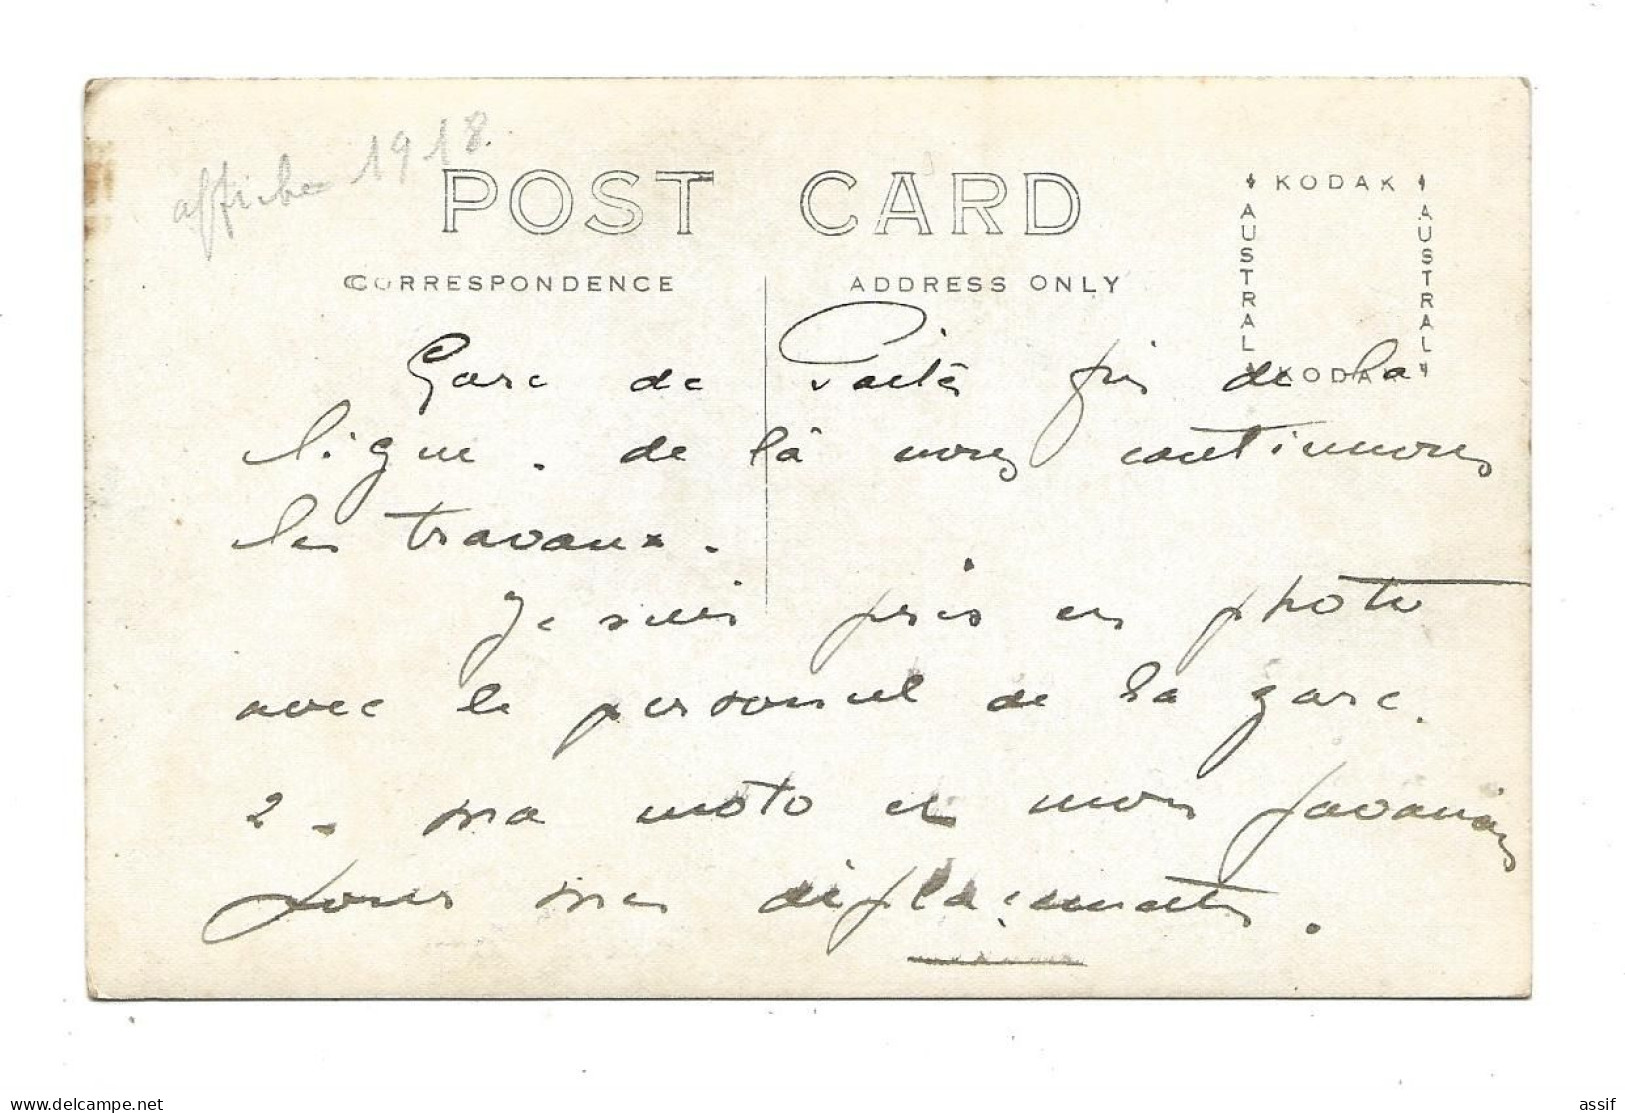 affiche 1918.
POST CARD
CORRESPONDENCE
ADDRESS ONLY
KODAK
AUSTRAL
AUSTRAL
KODAK
Gare de Païta fin de la
ligne. de là nous continuons
les travaux.
Je suis pris en photo
avec le personnel de la gare.
2 - ma moto et mon javanais
pour mes déplacements.
delcampe.net
assif